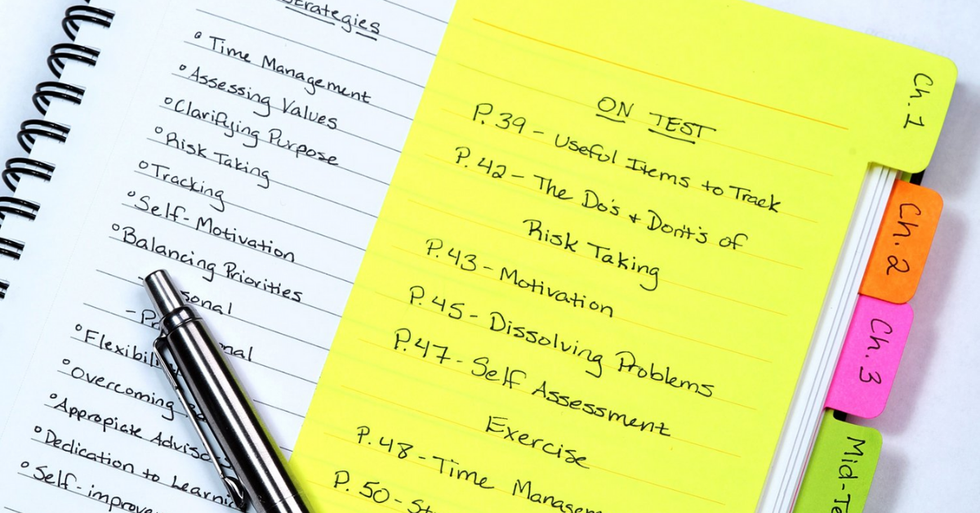 Strategies
° Time Management
° Assessing Values
° Clarifying Purpose
° Risk Taking
° Tracking
° Self-Motivation
° Balancing Priorities
° Overcoming
° Appropiate
° Dedication to
ON TEST
P. 39 - Useful Items to Track
P. 42 - The Do's + Dont's of
Risk Taking
P. 43 - Motivation
P. 45 - Dissolving Problems
P. 47 - Self Assessment
Exercise
P. 48 - Time
P. 50 -
Ch. 1
Ch. 2
Ch. 3